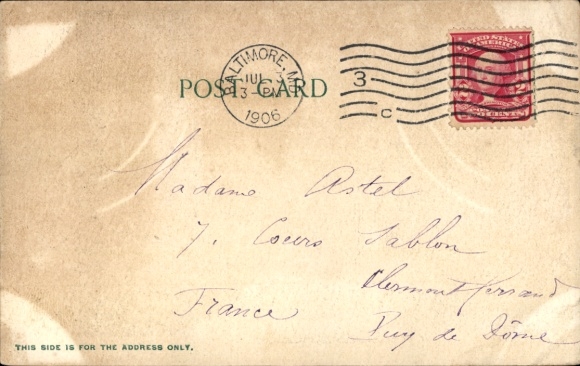 BALTIMORE, MD.
JUL 3
3 - PM
1906
3
C
POST CARD
UNITED STATES
OF AMERICA
2 2
CENTS
Madame Astel
7, Cours Sablon
Clermont Ferrand
France
Puy de Dôme
THIS SIDE IS FOR THE ADDRESS ONLY.